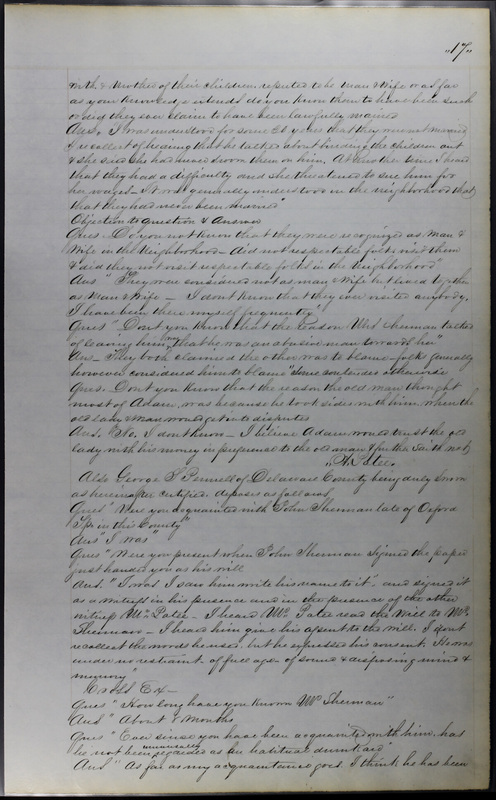 "17"
with & mother of their children reputed to be man & wife or as far
as your knowledge extends do you know them to have been such
or did they ever claim to have been lawfully married
Ans, I was understood for some 20 years that they were not married
I recollect of hearing that he talked about binding the children out
& she said she had never sworn them on him, At another time I heard
that they had a difficulty and she threatened to sue him for
her wages – It was generally understood in the neighborhood that
that they had never been married"
Objection to question & Answer
Ques – Do you not know that they were recognized as Man &
Wife in the Neighborhood – did not respectable folks visit them
& did they not visit respectable folks in the Neighborhood"
Ans " They were considered not as man & wife but lived together
as Man & Wife – I dont know that they ever visited anybody,
I have been there myself frequently"
Ques " Dont you know that the reason Mrs Sherman talked
of leaving him was that he was an abusive man towards her"
Ans – They both claimed the other was to blame – folks generally
however considered him to blame "Some contended otherwise
Ques. Dont you know that the reason the old man thought
most of Adam was because he took sides with him when the
old lady & man would get into disputes
Ans. No, I dont know – I believe Adam would trust the old
lady with his money in preference to the old man & further saith not
Wm Pates
Also George S Pernell of Delaware County being duly sworn
as hereinafter certified deposes as follows
Ques " Were you acquainted with John Sherman late of Oxford
Tp in this County"
Ans " I was"
Ques " Were you present when John Sherman signed the paper
just handed you as his will
Ans. " I was I saw him write his name to it – and signed it
as a witness in his presence and in the presence of the other
witness Wm Pates – I heard Mr Pates read the Will to Mr
Sherman – I heard him give his assent to the will. I dont
recollect the words he used, but he expressed his consent. He was
under no restraint of full age of sound & disposing mind &
memory"
Cross Ex –
Ques " How long have you known Mr Sherman"
Ans " About 8 Months
Ques " Ever since you have been acquainted with him has
he not been universally regarded as an habitual drunkard"
Ans " As far as my acquaintance goes I think he has been